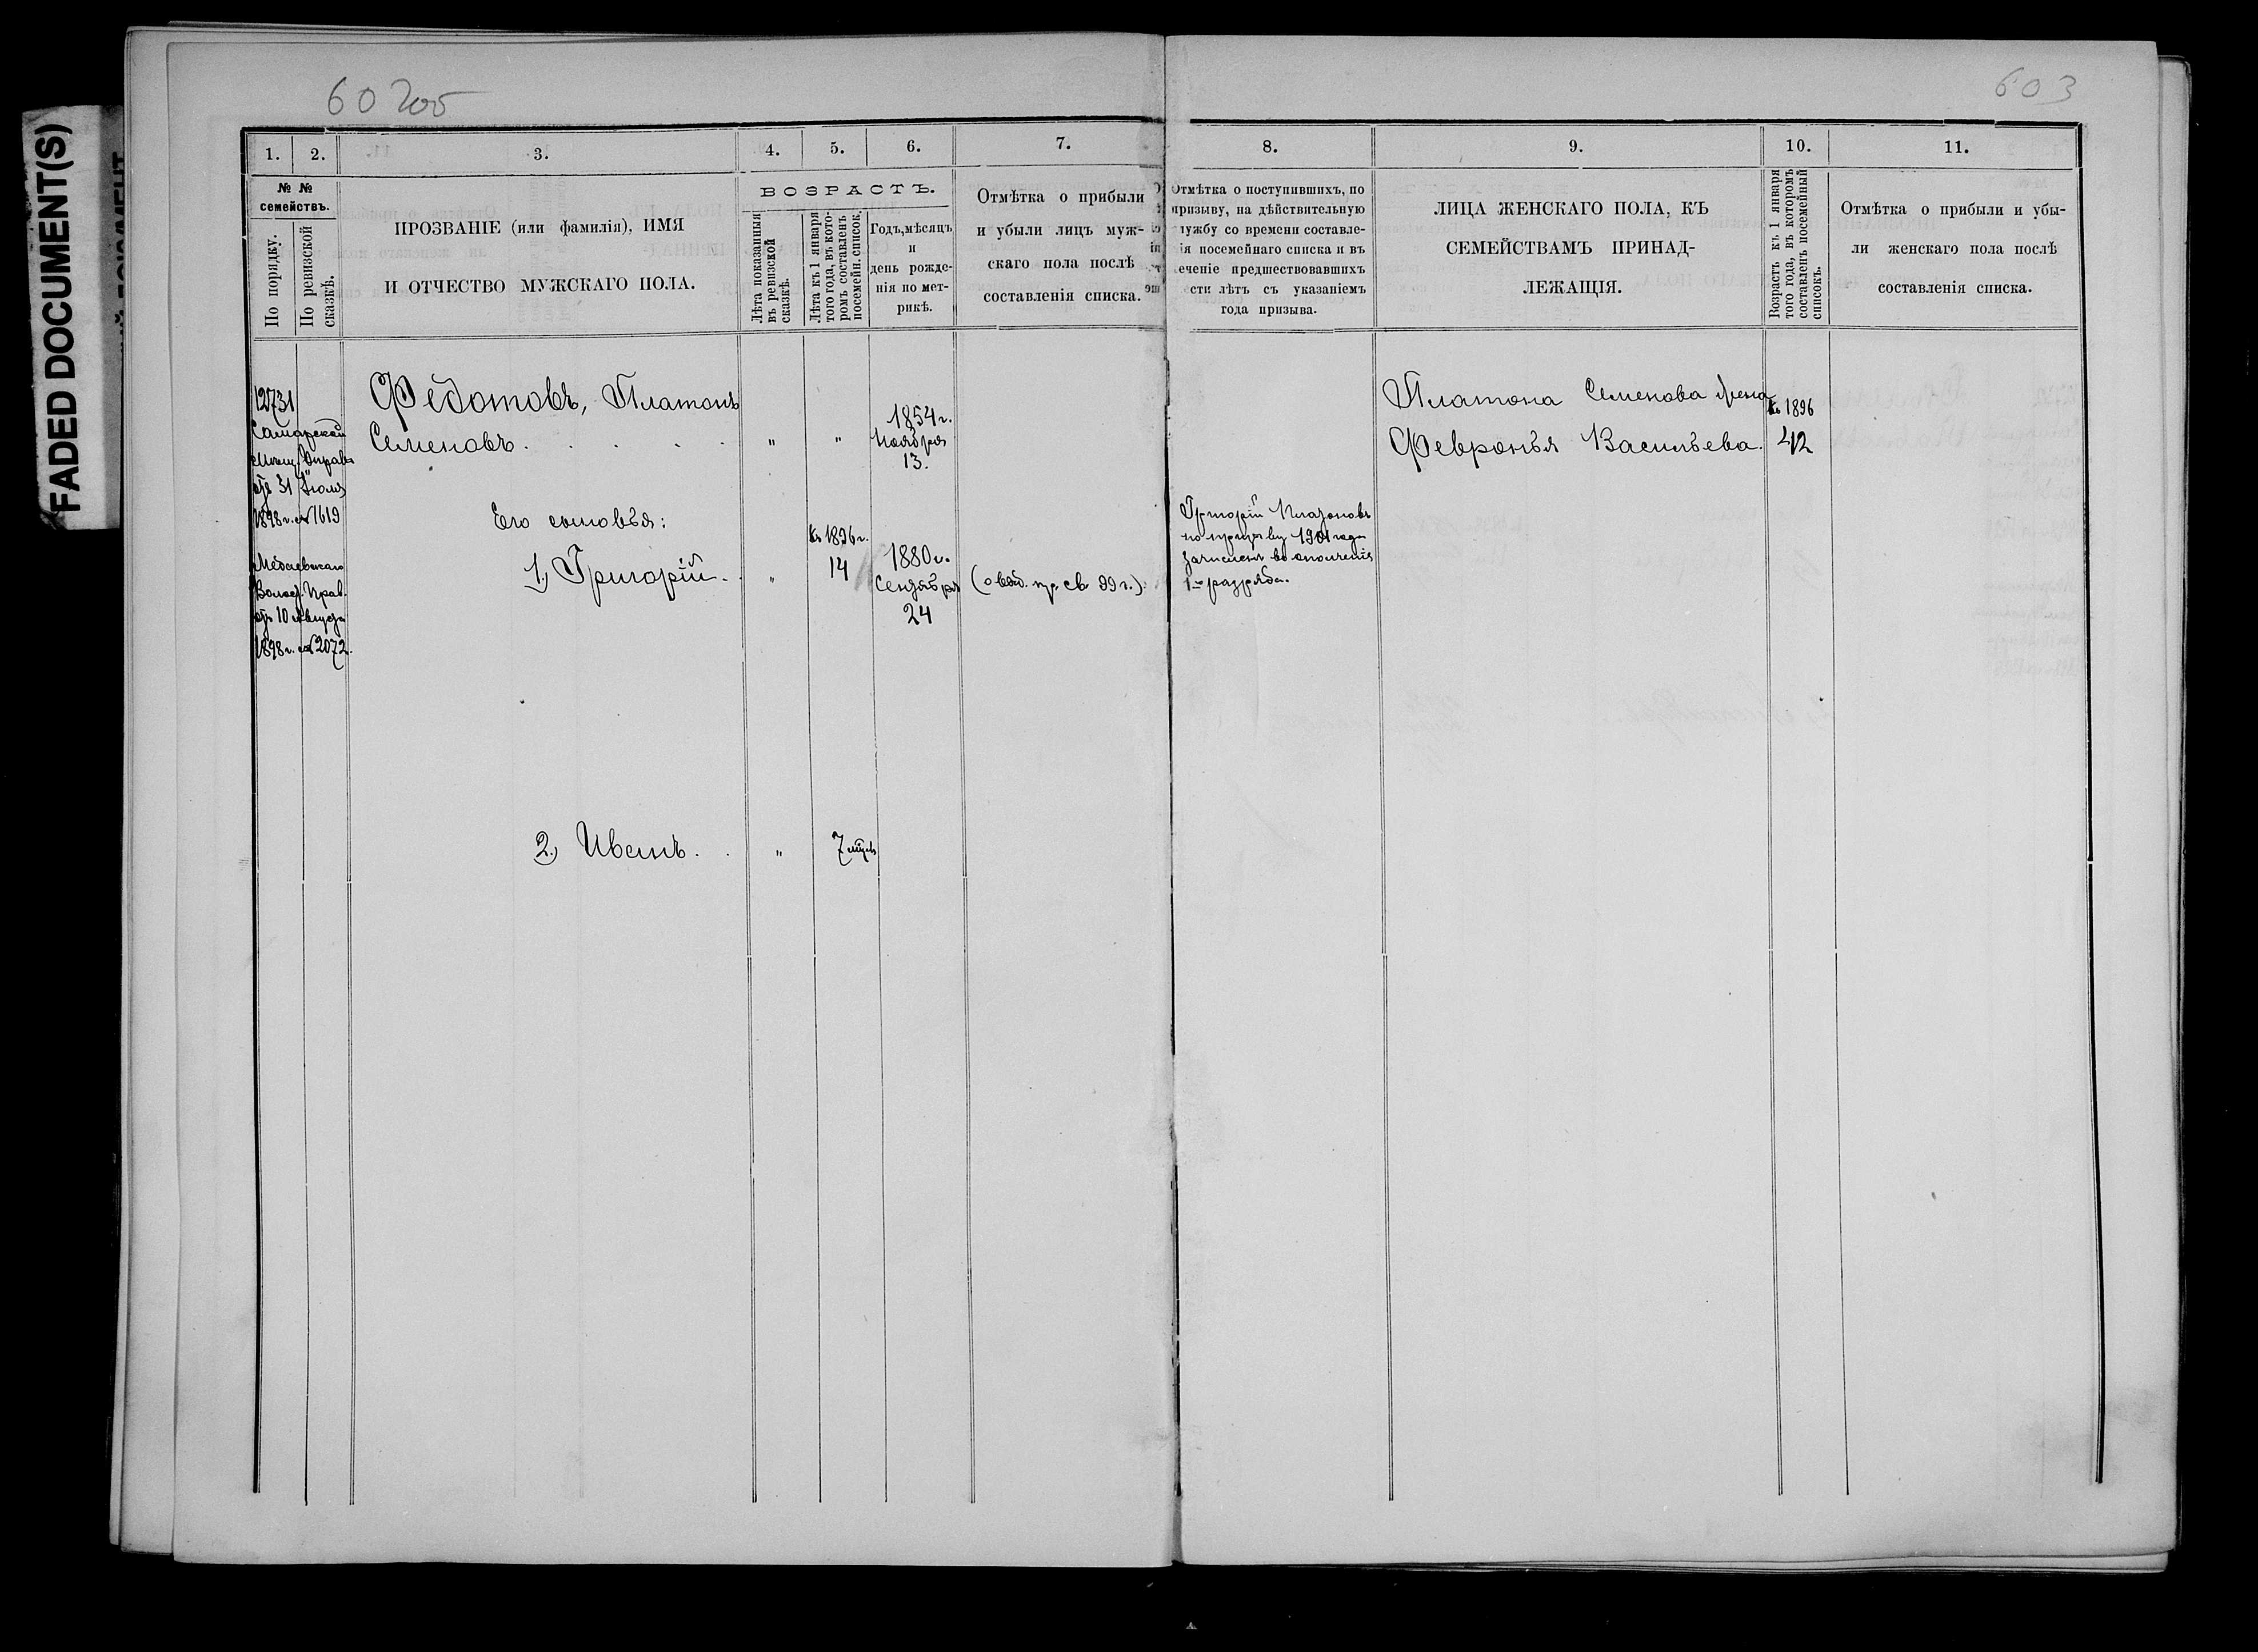 FADED DOCUMENT(S)
60 2об
603
1.
2.
3.
4.
5.
6.
7.
8.
9.
10.
11.
№ №
семействъ.
По порядку.
По ревизской
сказкѣ.
ПРОЗВАНІЕ (или фамилія), ИМЯ
И ОТЧЕСТВО МУЖСКАГО ПОЛА.
ВОЗРАСТЪ.
Лѣта показанныя
въ ревизской
сказкѣ.
Лѣта къ 1 января
того года, въ кото-
ромъ составленъ
посемейн. списокъ.
Годъ, мѣсяцъ
и
день рожде-
нія по мет-
рикѣ.
Отмѣтка о прибыли
и убыли лицъ муж-
скаго пола послѣ
составленія списка.
Отмѣтка о поступившихъ, по
призыву, на дѣйствительную
службу со времени составле-
ія посемейнаго списка и въ
еченіе предшествовавшихъ
сти лѣтъ съ указаніемъ
года призыва.
ЛИЦА ЖЕНСКАГО ПОЛА, КЪ
СЕМЕЙСТВАМЪ ПРИНАД-
ЛЕЖАЩІЯ.
Возрастъ къ 1 января
того года, въ которомъ
составленъ посемейный
списокъ.
Отмѣтка о прибыли и убы-
ли женскаго пола послѣ
составленія списка.
12731
Самарской
Мѣщ. Управ.
отъ 31 Іюля
1898 г. № 1619
Медаевскаго
Волост. Прав.
отъ 10 Августа
1898 г. № 2072.
Федотовъ, Платонъ
Семеновъ. . . . . " "
1854 г.
Ноября
13.
Его сыновья:
1.) Григорій. . "
къ 1896 г.
14
1880 г.
Сентября
24
(о веод. пр. св. 99 г.)
2.) Иванъ. . " 7 мѣс.
Григорій Платоновъ
по призыву 1901 года
зачисленъ въ ополченіе
1го разряда.
Платона Семенова жена
Февронья Васильева.
къ 1896
42